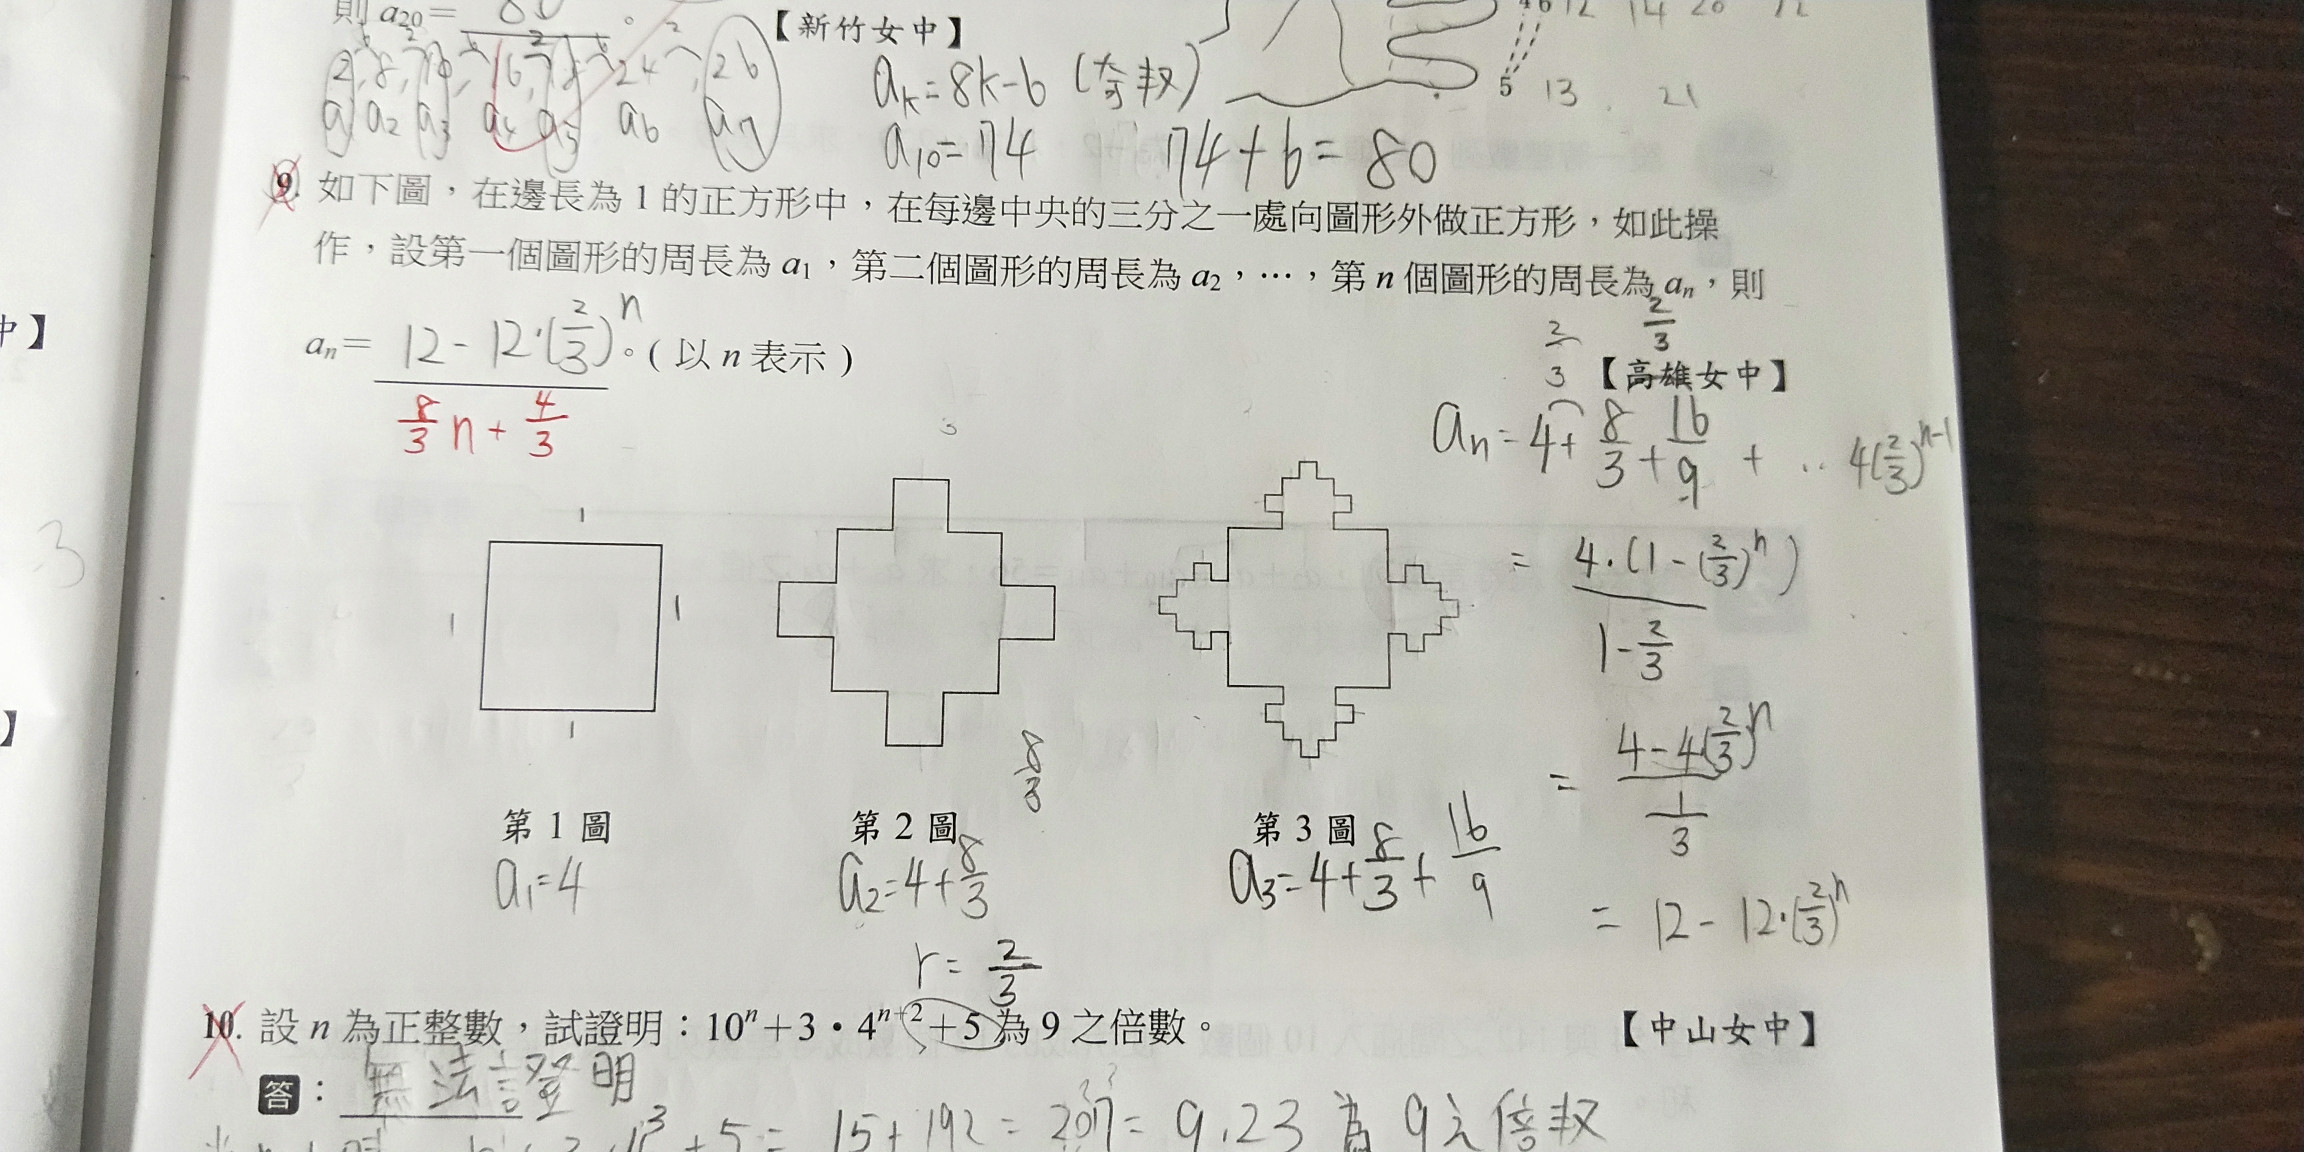 則 a₂₀= 80 。 【新竹女中】
12 14 20 22
2, 8, 10, 16, 18, 24, 26
a₁ a₂ a₃ a₄ a₅ a₆ a₇
aₖ=8k-6 (奇数)
5 13 21
a₁₀=74 74+6=80
9. 如下圖，在邊長為 1 的正方形中，在每邊中央的三分之一處向圖形外做正方形，如此操
作，設第一個圖形的周長為 a₁，第二個圖形的周長為 a₂，…，第 n 個圖形的周長為 aₙ，則
aₙ= 12-12·(2/3)ⁿ 。( 以 n 表示 )
8/3 n + 4/3
2/3 2/3
【高雄女中】
aₙ=4+8/3+16/9+ .. 4(2/3)ⁿ⁻¹
= 4·(1-(2/3)ⁿ) / 1-2/3
= 4-4(2/3)ⁿ / 1/3
= 12-12·(2/3)ⁿ
1
1 1
1
3
8/3
第 1 圖 第 2 圖 第 3 圖
a₁=4 a₂=4+8/3 a₃=4+8/3+16/9
r=2/3
10. 設 n 為正整數，試證明：10ⁿ＋3・4ⁿ⁺²＋5 為 9 之倍數。 【中山女中】
答：無法證明
+5= 15+192=207=9.23 為 9之倍数
中】
】
3